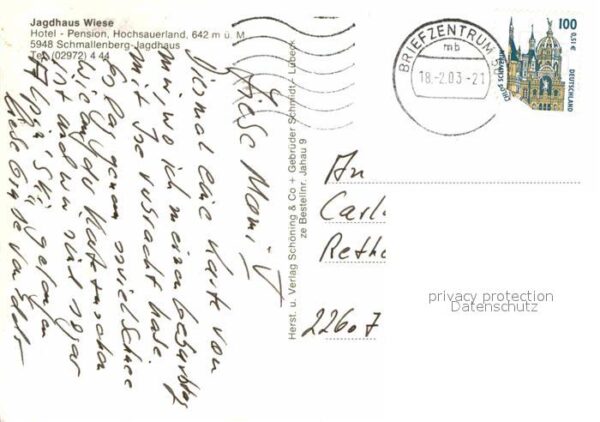 Jagdhaus Wiese
Hotel - Pension, Hochsauerland, 642 m ü. M.
5948 Schmallenberg-Jagdhaus
Tel. (02972) 4 44
BRIEFZENTRUM
mb
18.-2.03-21
100
0,51€
DEUTSCHLAND
Liese Momi
Diesmal eine Karte von
mir, wo ich meinen Geburtstag
mit Ise verbracht habe.
Es lag genau soviel Schnee
wie auf der Karte zu sehen
ist und wir sind sogar
Alpin Ski gelaufen
Liebe Grüße von
Herst. u. Verlag Schöning & Co + Gebrüder Schmidt, Lübeck
ze Bestellnr. Jahau 9
An
Carl
Rethe
22607
privacy protection
Datenschutz